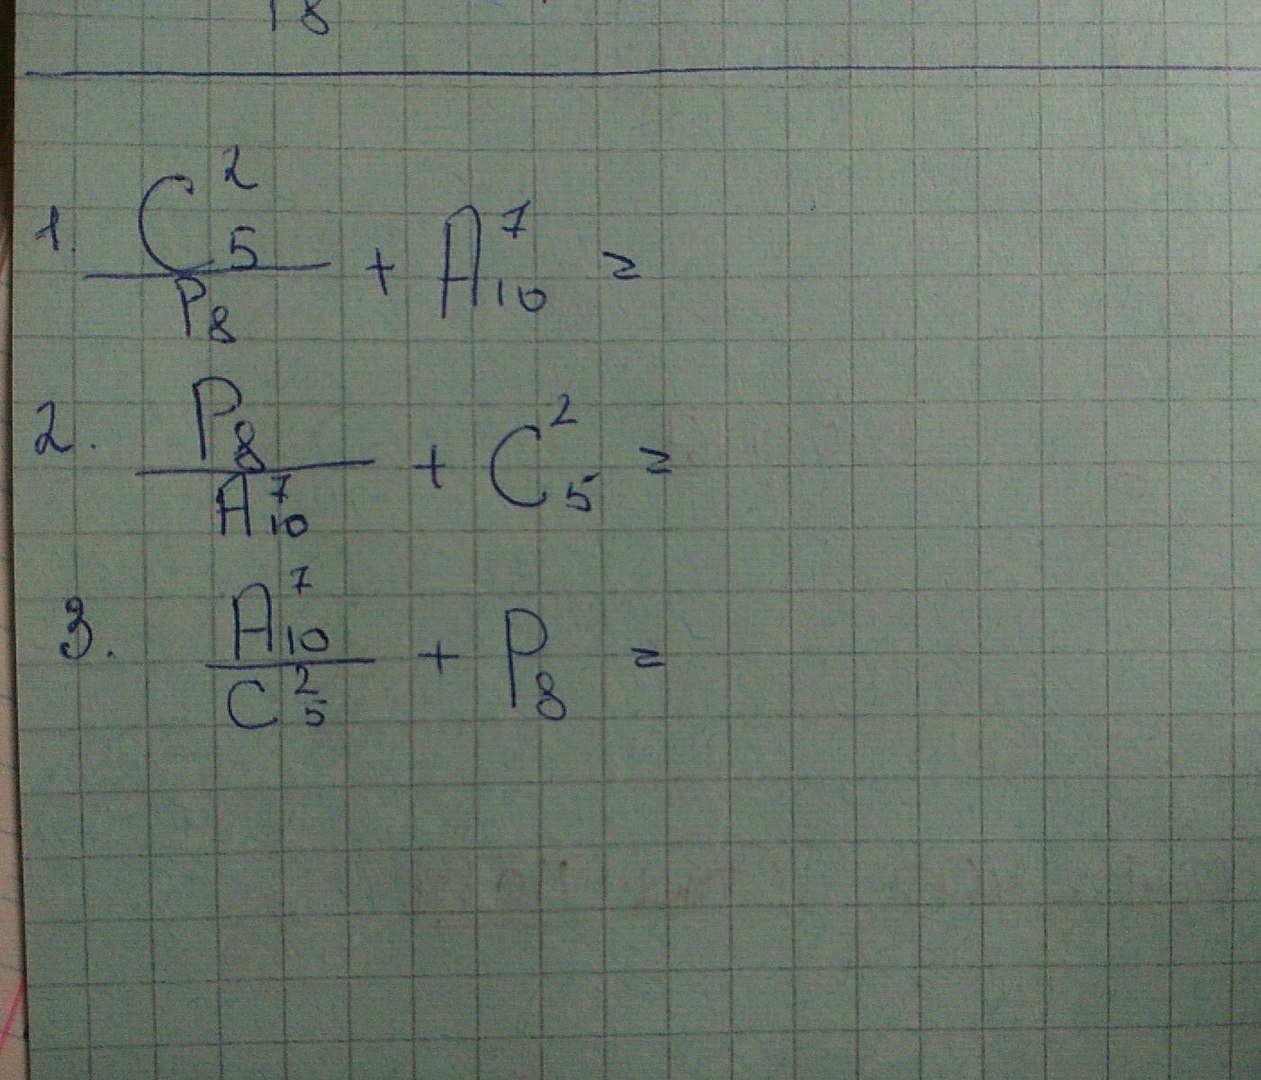 18
1. C_5^2 / P_8 + A_10^7 =
2. P_8 / A_10^7 + C_5^2 =
3. A_10^7 / C_5^2 + P_8 =